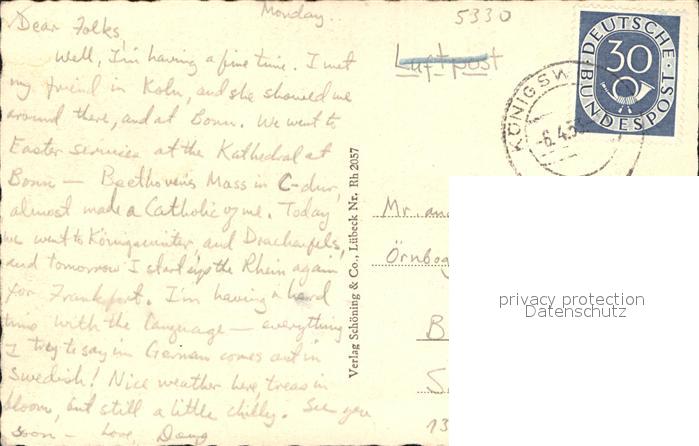 Monday.
5330
Dear Folks,
Well, I'm having a fine time. I met
my friend in Köln, and she showed me
around there, and at Bonn. We went to
Easter services at the Kathedral at
Bonn — Beethoven's Mass in C-dur,
almost made a Catholic of me. Today
we went to Königswinter, and Drachenfels,
and tomorrow I start up the Rhein again
for Frankfort. I'm having a hard
time with the language — everything
I try to say in German comes out in
Swedish! Nice weather here, trees in
bloom, but still a little chilly. See you
soon — Love, Doug
Luftpost
DEUTSCHE
BUNDESPOST
30
KÖNIGSW
-6.4.53
Verlag Schöning & Co., Lübeck Nr. Rh 2057
Mr. and
Örnbog
B
S
13
privacy protection
Datenschutz